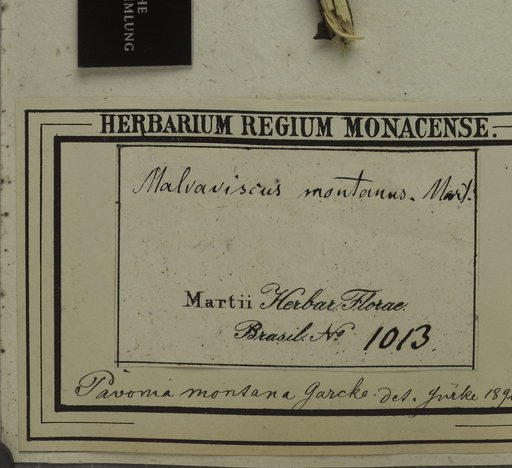 HE
MLUNG
HERBARIUM REGIUM MONACENSE.
Malvaviscus montanus. Mart.
Martii Herbar. Florae
Brasil. No 1013
Pavonia montana Garcke. det. Gürke